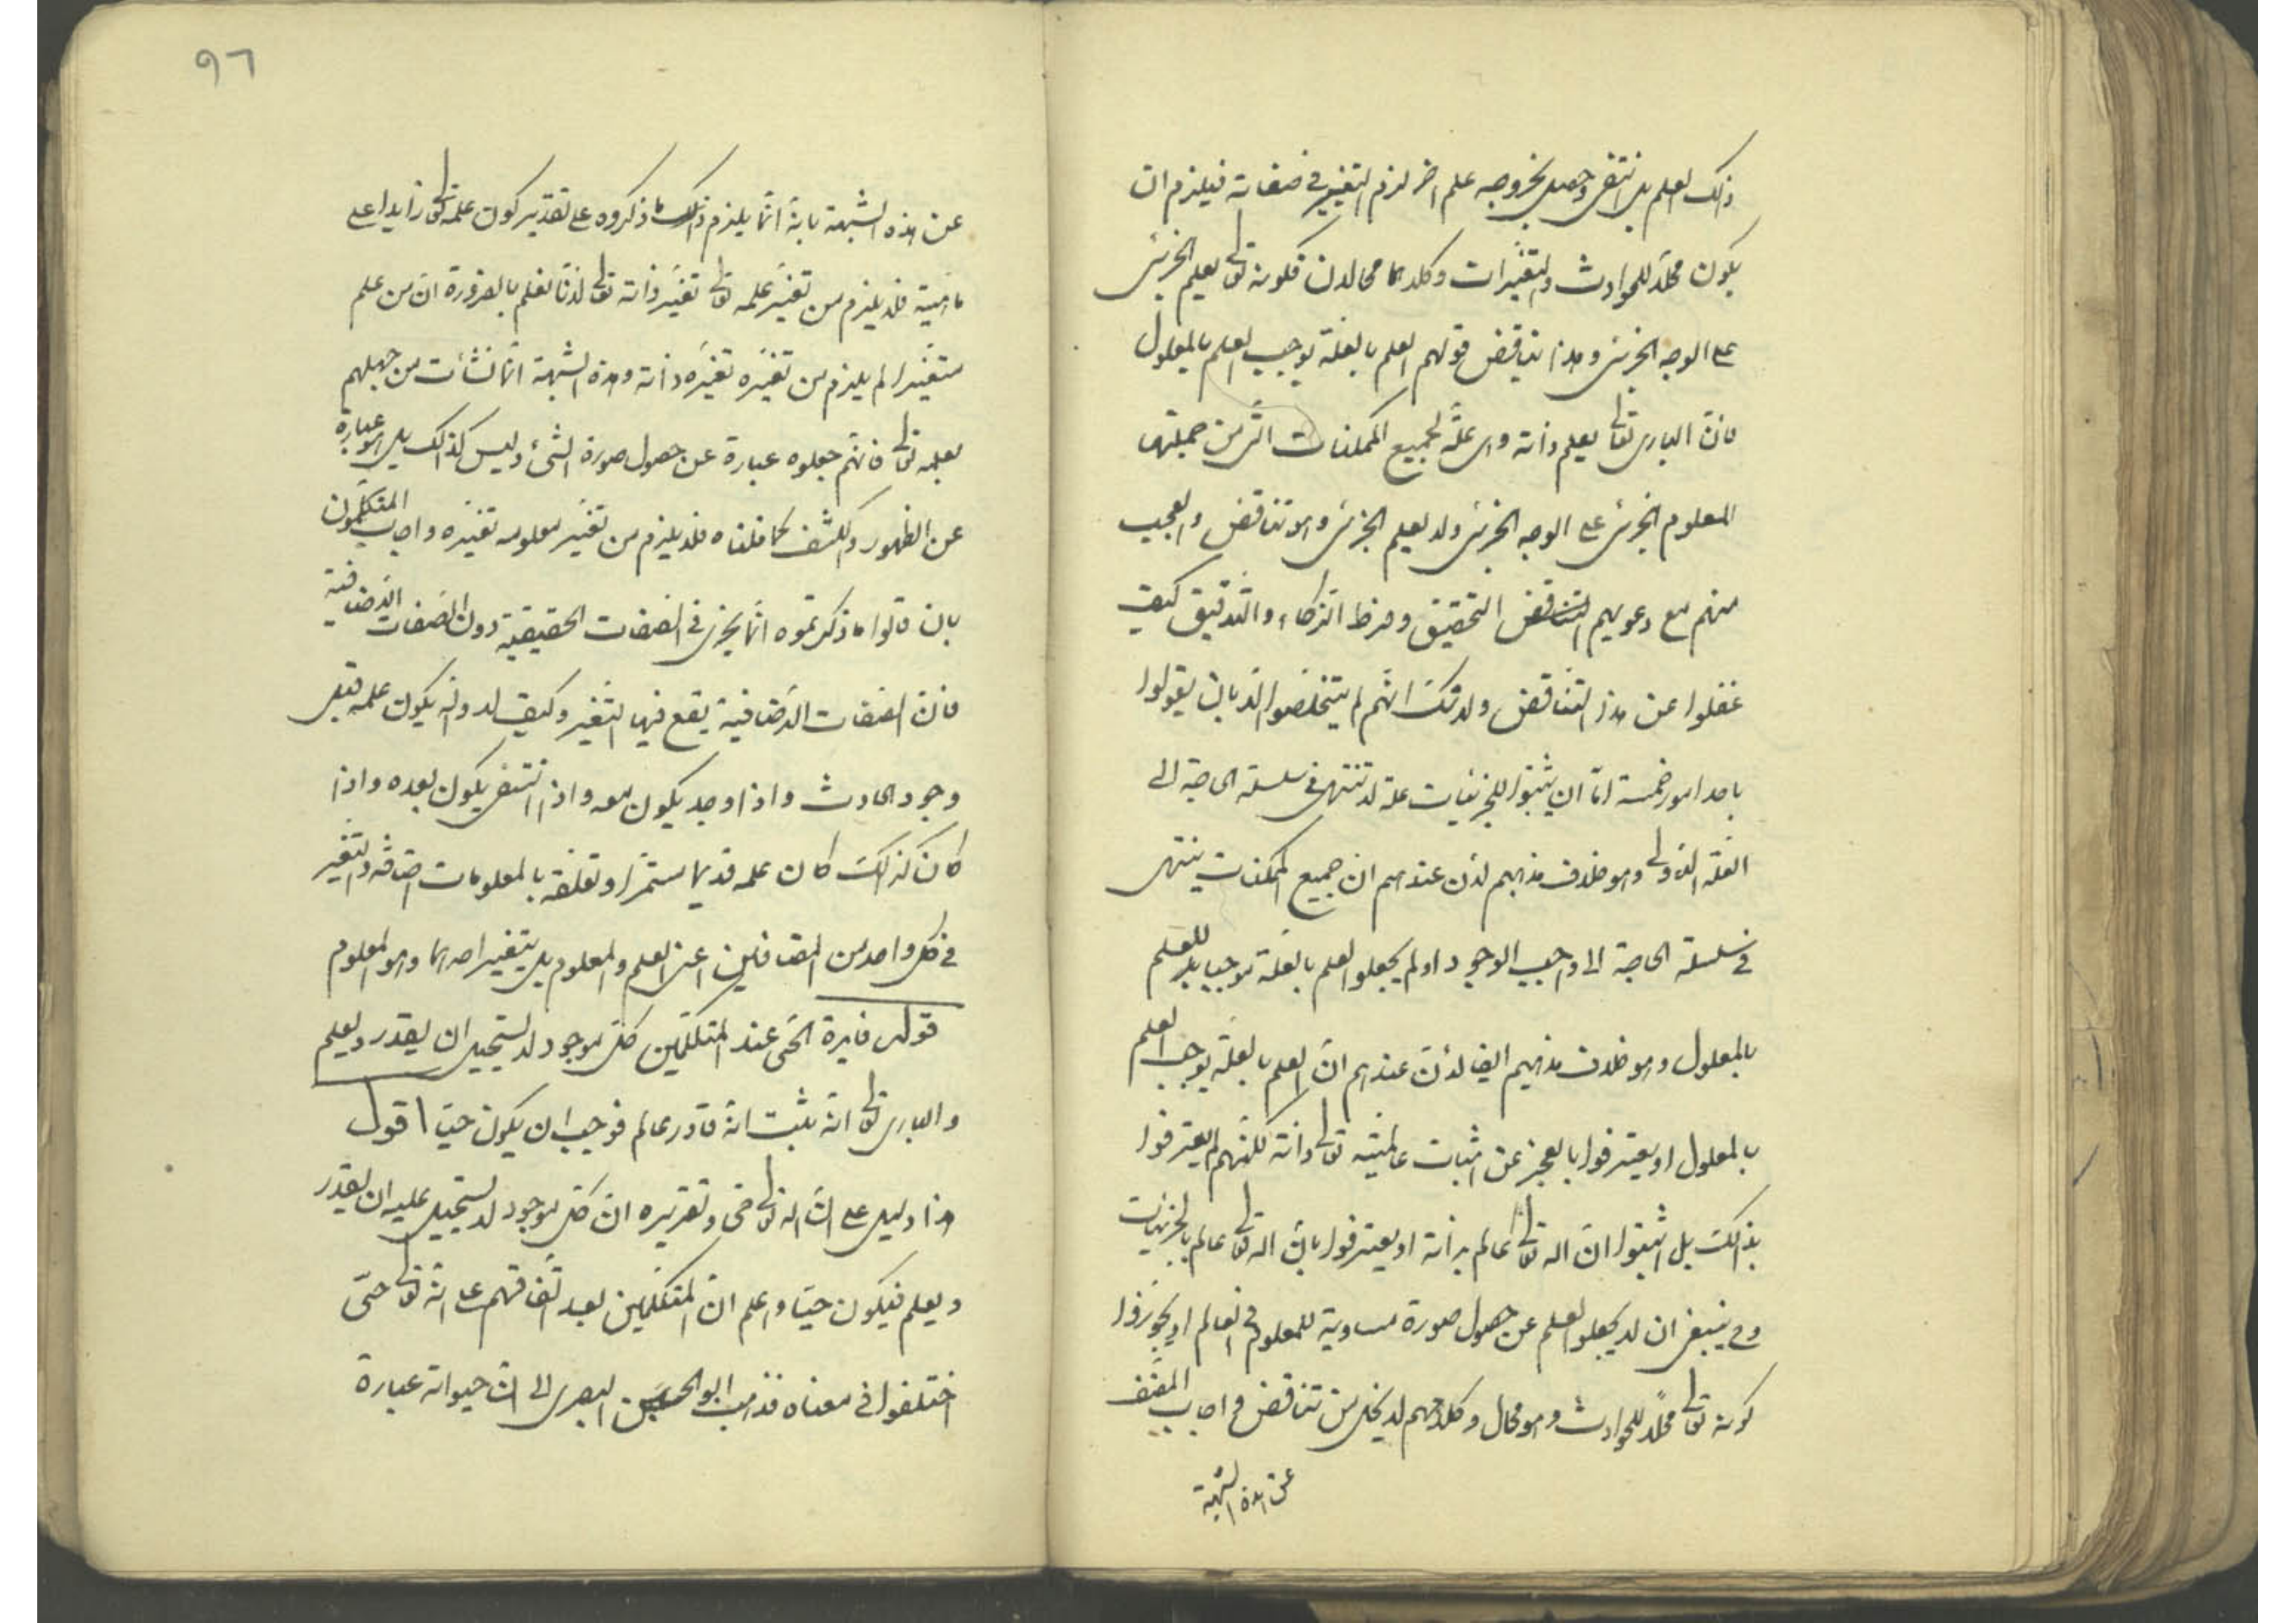 ذلك العلم بل ينتفى وحصل بخروجه علم اخر لزم التغيير فى صفاته فيلزم ان
يكون محلا للحوادث والتغيرات وكلاهما محالان فكونه تعالى يعلم الجزئى
على الوجه الجزئى وهذا يناقض قولهم العلم بالعلة يوجب العلم بالمعلول
فان البارى تعالى يعلم ذاته وهى علة لجميع الممكنات التى من جملتها
المعلوم الجزئى على الوجه الجزئى ولا يعلم الجزئى وهو تناقض والعجب
منهم مع دعويهم التحقيق وفرط الذكاء والتدقيق كيف
غفلوا عن هذا التناقض ولا شك انهم لم يتخلصوا الا بان يقولوا
باحد امور خمسة اما ان يثبتوا للجزئيات علة لا تنتهى فى سلسلة الحاجة الى
العلة الاولى وهو خلاف مذهبهم لان عندهم ان جميع الممكنات ينتهى
فى سلسلة الحاجة الى واجب الوجود او لم يجعلوا العلم بالعلة موجبا للعلم
بالمعلول وهو خلاف مذهبهم ايضا لان عندهم ان العلم بالعلة يوجب العلم
بالمعلول او يعترفوا بالعجز عن اثبات عالميته تعالى ذاته لكنهم لم يعترفوا
بذلك بل اثبتوا ان اله تعالى عالم بذاته او يعترفوا بان اله تعالى عالم بالجزئيات
وح ينبغى ان لا يجعلوا العلم عن حصول صورة مساوية للمعلوم فى العالم او يجوزوا
كونه تعالى محلا للحوادث وهو محال وكلامهم لا يخلى من تناقض واجاب المصنف
عن هذه الشبهة
٩٦
عن هذه الشبهة بانه انما يلزم ذلك ما ذكروه على تقدير كون علمه تعالى زايدا على
ماهيته فلا يلزم من تغير علمه تعالى تغير ذاته تعالى لانا نعلم بالضرورة ان من علم
متغيرا لم يلزم من تغيره تغيره ذاته وهذه الشبهة انما نشأت من جهلهم
بعلمه تعالى فانهم جعلوه عبارة عن حصول صورة الشىء وليس كذلك بل هو عبارة
عن الظهور والكشف كما قلناه فلا يلزم من تغير معلومه تغيره واجاب المتكلمون
بان قالوا ما ذكرتموه انما يجرى فى الصفات الحقيقية دون الصفات الاضافية
فان الصفات الاضافية يقع فيها التغير وكيف لا وانه يكون علمه قبل
وجود الحادث واذا وجد يكون معه واذا انتفى يكون بعده واذا
كان كذلك كان علمه قديما مستمرا وتعلقه بالمعلومات اضافة والتغير
فى كل واحد من المضافين اعنى العلم والمعلوم بل يتغير احدهما وهو المعلوم
قوله فايدة الحى عند المتكلمين كل موجود لا يستحيل ان يقدر ويعلم
والبارى تعالى انه يثبت انه قادر عالم فوجب ان يكون حيا اقول
هذا دليل على ان اله تعالى حى وتقريره ان كل موجود لا يستحيل عليه ان يقدر
ويعلم فيكون حيا واعلم ان المتكلمين بعد اتفاقهم على انه تعالى حى
اختلفوا فى معناه فذهب ابو الحسين البصرى الى ان حيواته عبارة